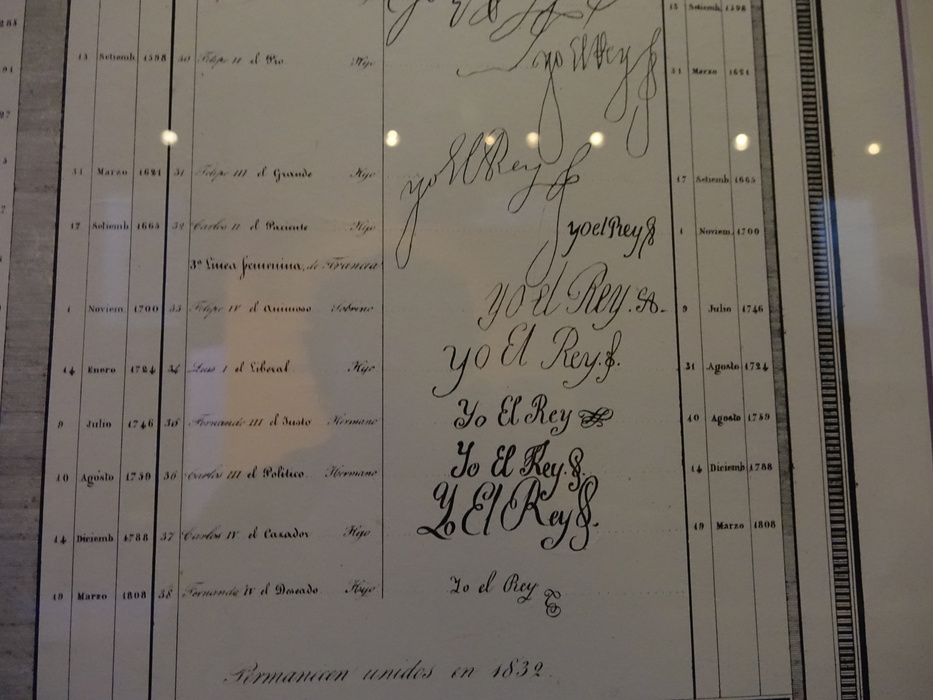 13 Setiemb 1598
13 Setiemb 1598 30 Felipe II el Pio Hijo yo El Rey 31 Marzo 1621
31 Marzo 1621 31 Felipe III el Grande Hijo yo El Rey 17 Setiemb 1665
17 Setiemb 1665 32 Carlos II el Paciente Hijo yo el Rey 1 Noviem. 1700
3ª Linea femenina, de Francia
1 Noviem. 1700 33 Felipe IV el Animoso Sobrino yo el Rey. 9 Julio 1746
14 Enero 1724 34 Luis I el Liberal. Hijo yo El Rey. 31 Agosto 1724
9 Julio 1746 35 Fernando III el Justo Hermano Yo El Rey 10 Agosto 1759
10 Agosto 1759 36 Carlos III el Politico. Hermano Yo El Rey. 14 Diciemb 1788
14 Diciemb 1788 37 Carlos IV el Cazador Hijo Yo El Rey. 19 Marzo 1808
19 Marzo 1808 38 Fernando IV el Deseado Hijo Yo el Rey
Permanecen unidos en 1832.